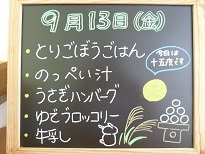 9月13日(金)
・とりごぼうごはん
・のっぺい汁
・うさぎハンバーグ
・ゆでブロッコリー
・牛乳
今日は
十五夜です